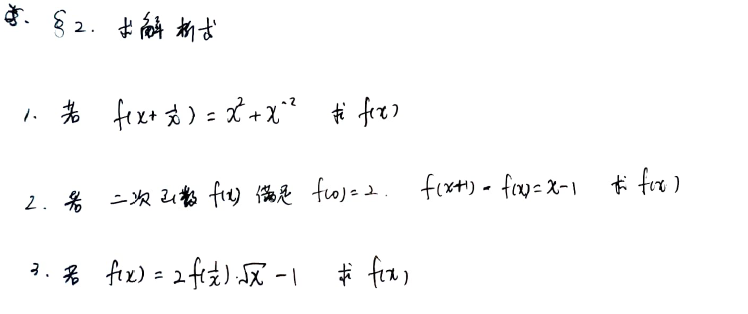 §2. 求解析式
1. 若 f(x+1/x)=x²+x⁻² 求 f(x)
2. 若 二次函数 f(x) 满足 f(0)=2. f(x+1)-f(x)=x-1 求 f(x)
3. 若 f(x)=2f(1/x)·√x-1 求 f(x)